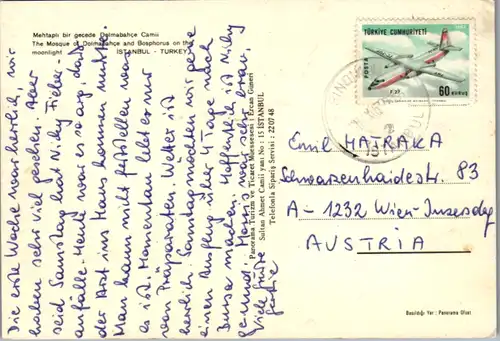 Mehtaplı bir gecede Dolmabahçe Camii
The Mosque of Dolmabahçe and Bosphorus on the
moonlight İSTANBUL - TURKEY
Die erste Woche war herrlich, wir
haben sehr viel gesehen. Aber
seid Samstag hat Nicky Fieber-
anfälle. Heute war es so arg, daß
der Arzt ins Haus kommen mußte.
Man kann nicht feststellen was
es ist. Momentan lebt er nur
von Präparaten. Wetter ist
herrlich. Samstag möchten wir gerne
einen Ausflug über 4 Tage nach
Bursa machen. Hoffentlich ist Nicky
gesund.
Viele Grüße
Panorama Turizm ve Ticaret Müessesesi : Ercan Güneri
Sultan Ahmet Camii yanı No : 15 İSTANBUL
Telefonla Sipariş Servisi : 22 07 48
TÜRKİYE CUMHURİYETİ
POSTA
F.27
60 KURUŞ
Emil MATRAKA
Schwarzenhaidestr. 83
A - 1232 Wien-Inzersdorf
AUSTRIA
Basıldığı Yer : Panorama Ofset